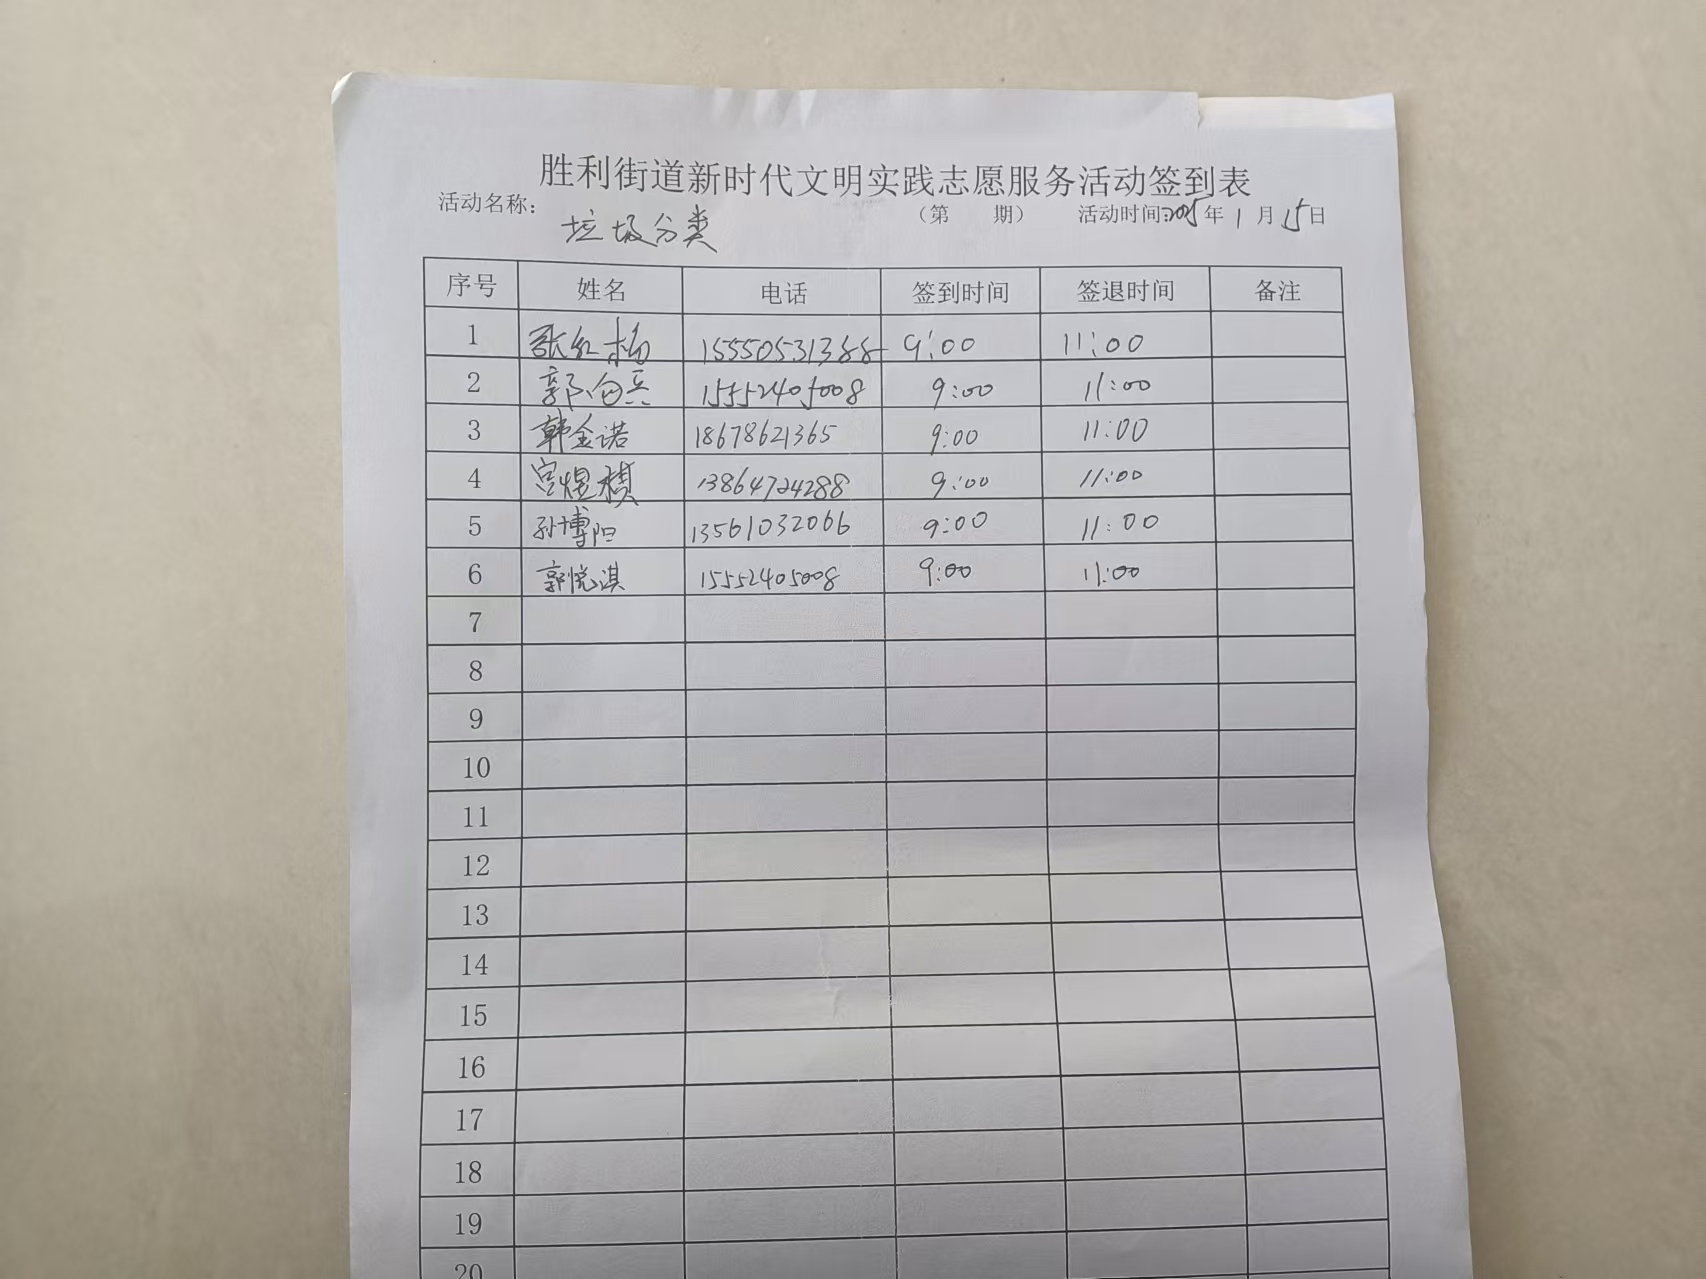 胜利街道新时代文明实践志愿服务活动签到表
活动名称: 垃圾分类 （第 期） 活动时间:2025年1月15日
序号 姓名 电话 签到时间 签退时间 备注
1 张红杨 15550531388 9:00 11:00
2 郭向兵 15552405008 9:00 11:00
3 韩金诺 18678621365 9:00 11:00
4 宫煜祺 13864724288 9:00 11:00
5 孙博阳 13561032066 9:00 11:00
6 郭悦淇 15552405008 9:00 11:00
7
8
9
10
11
12
13
14
15
16
17
18
19
20